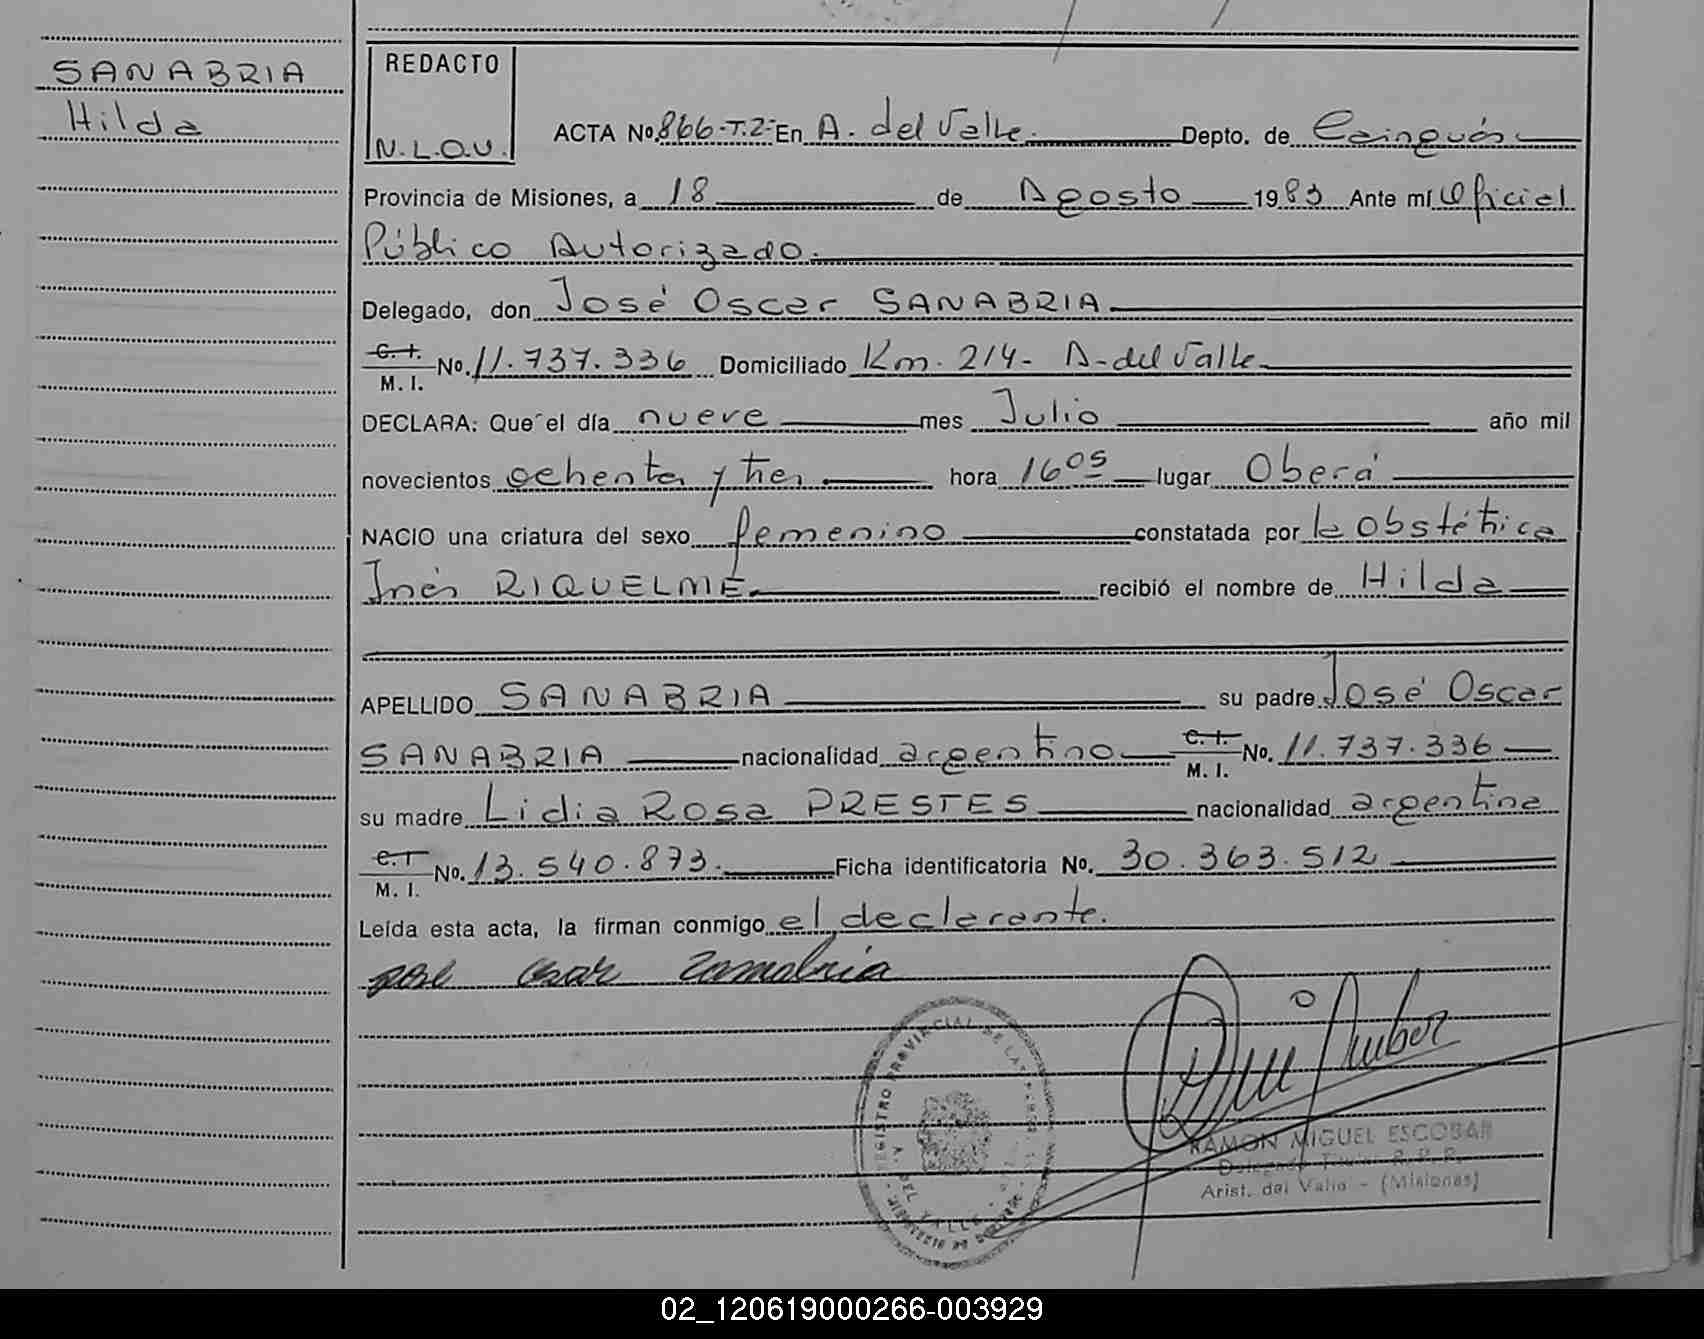 SANABRIA
Hilda
REDACTO
N.L.O.V.
ACTA No. 866-T.2- En A. del Valle. Depto. de Cainguás
Provincia de Misiones, a 18 de Agosto 1983 Ante mí Oficial
Público Autorizado.
Delegado, don José Oscar SANABRIA
C. I. M. I. No. 11.737.336 Domiciliado Km. 214- A-del Valle
DECLARA: Que el día nueve mes Julio año mil
novecientos ochenta y tres hora 16 05 lugar Oberá
NACIO una criatura del sexo femenino constatada por la obstétrica
Inés RIQUELME. recibió el nombre de Hilda
APELLIDO SANABRIA su padre José Oscar
SANABRIA nacionalidad argentino C. I. M. I. No. 11.737.336
su madre Lidia Rosa PRESTES nacionalidad argentina
C. I M. I. No. 13.540.873. Ficha identificatoria No. 30.363.512
Leída esta acta, la firman conmigo el declarante.
jose Osar Zamabria
REGISTRO PROVINCIAL DE LAS
A. DEL VALLE
RAMON MIGUEL ESCOBAR
Delegado Titular R. P. P.
Arist. del Valle - (Misiones)
02_120619000266-003929